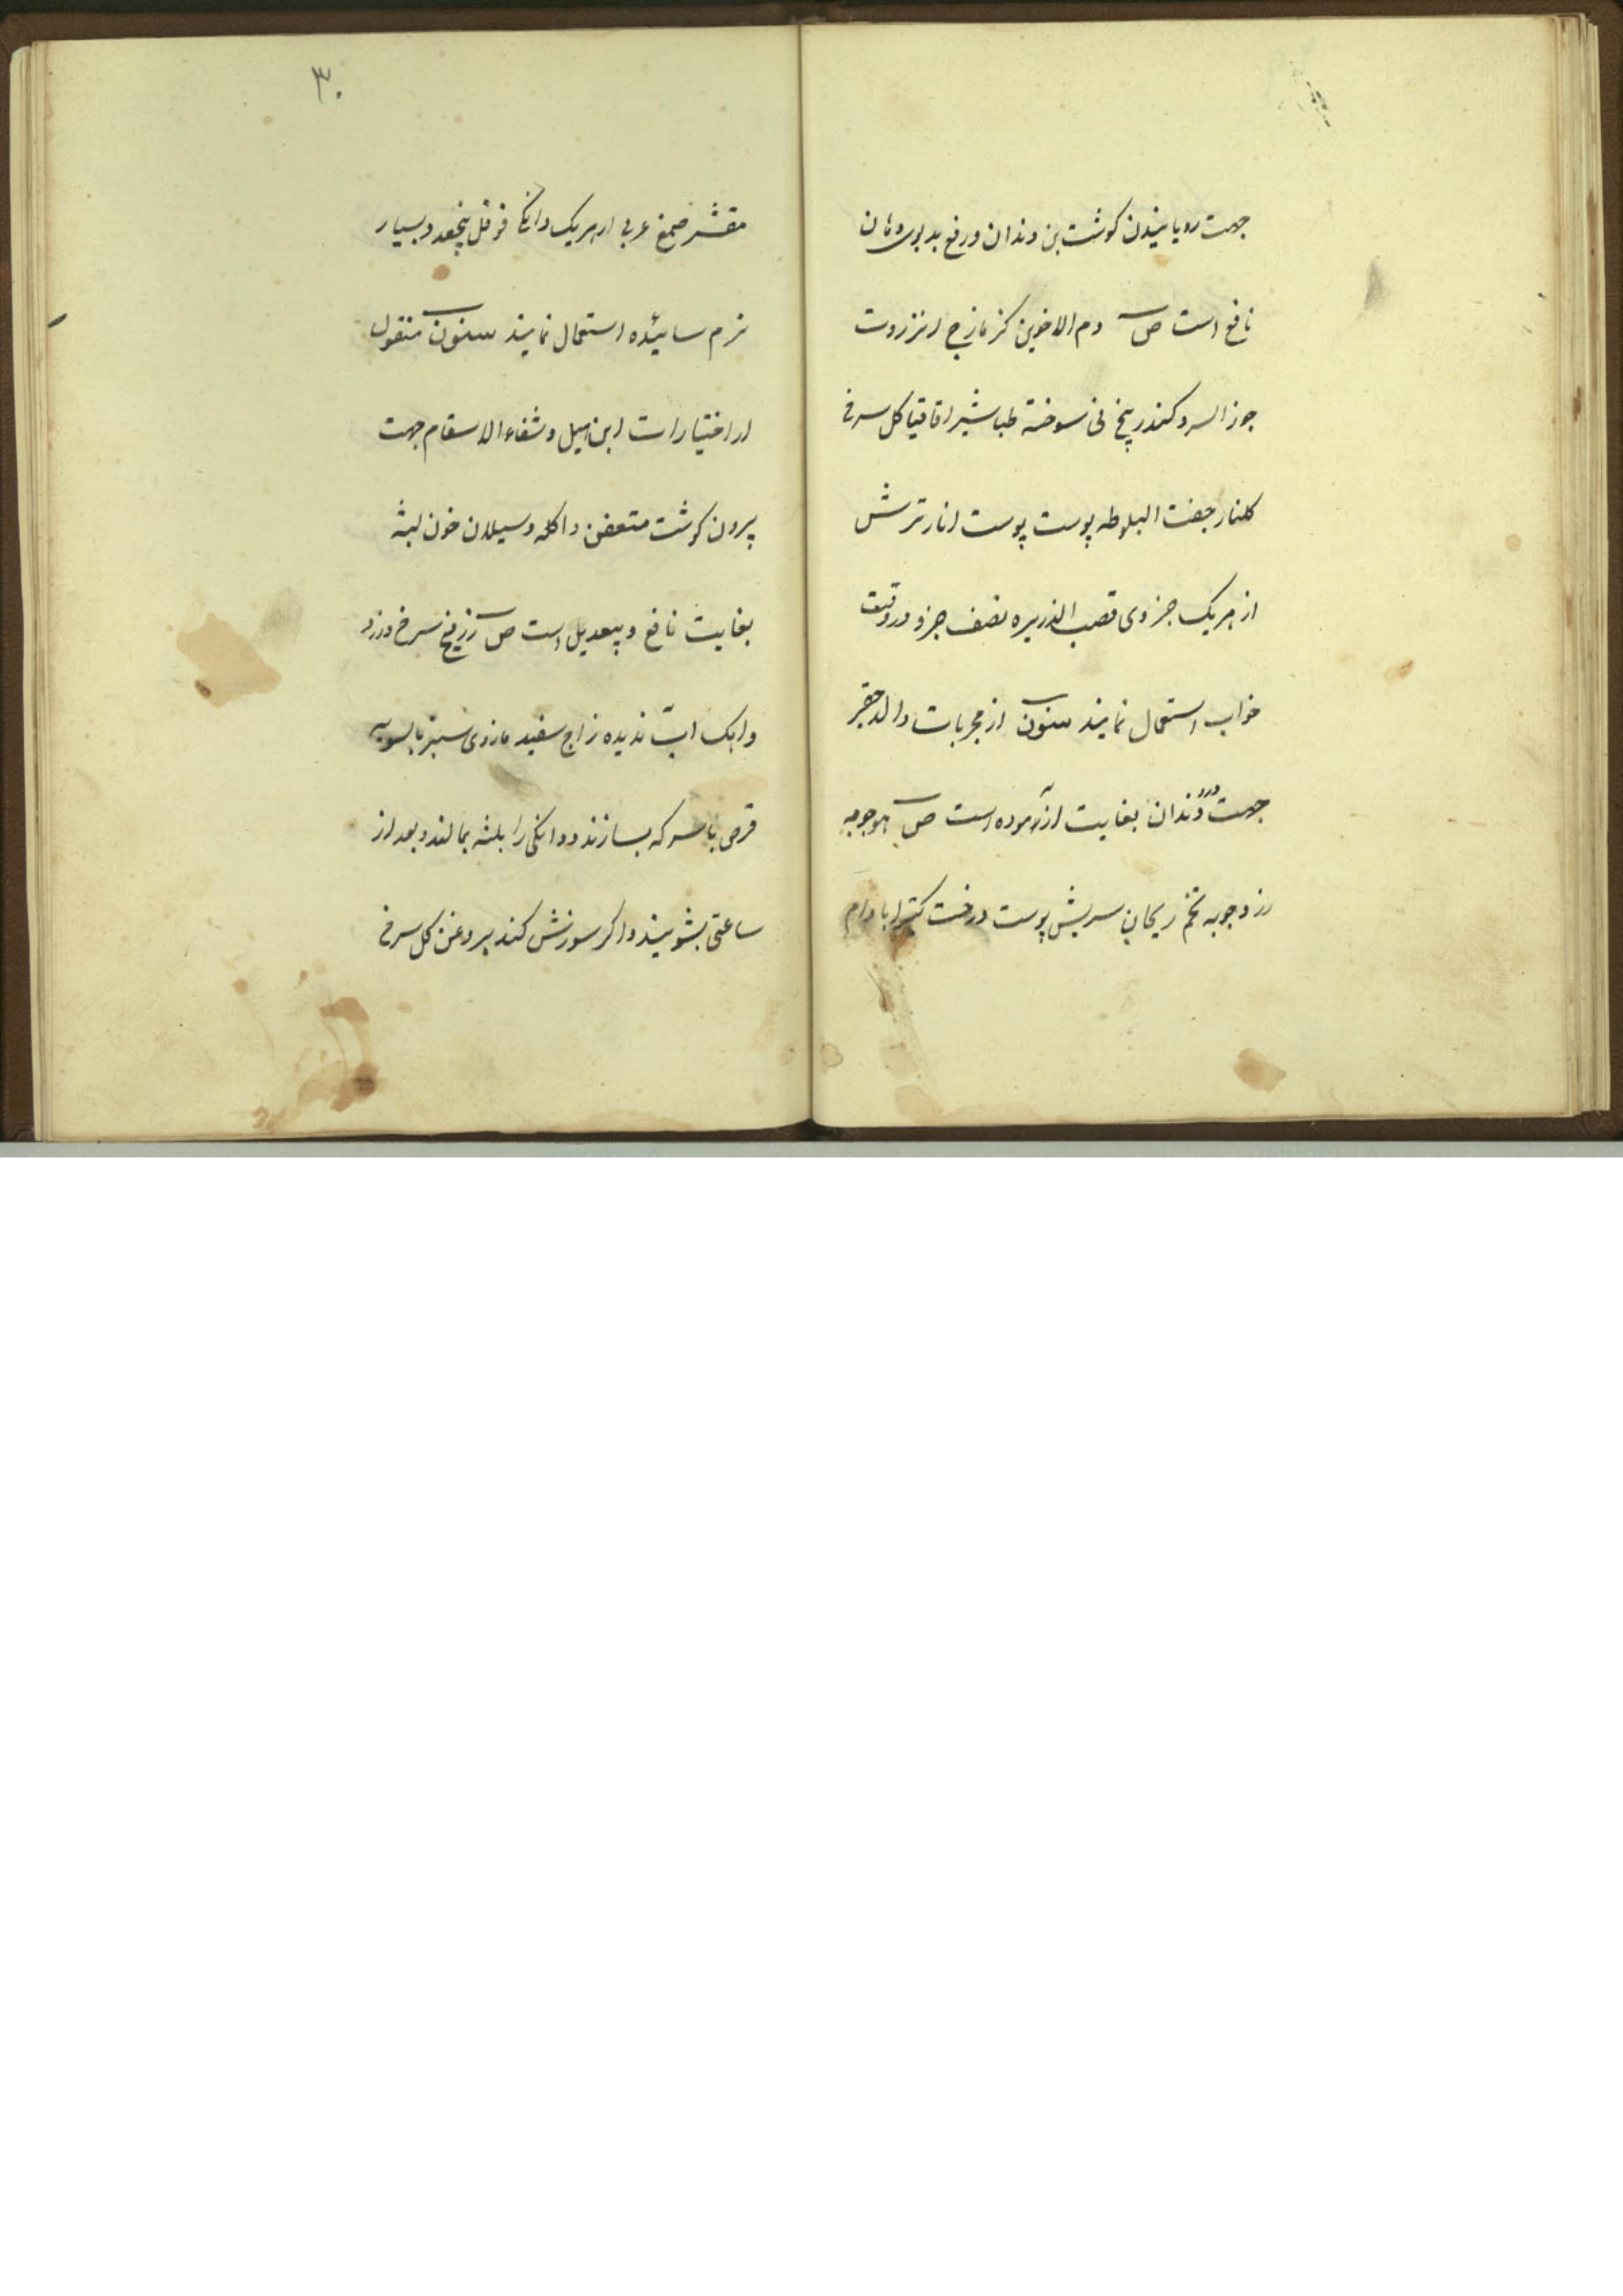 جهت رویانیدن کوشت بن دندان و رفع بد بوی دهان
نافع است ص دم الاخوین کزمازج انزروت
جوز السرو کندر بیخ نی سوخته طباشیر اقاقیا کل سرخ
کلنار جفت البلوط پوست انار ترش
از هریک جزوی قصب الذریره نصف جزو در وقت
خواب استعمال نمایند سنون از مجربات والد حقیر
جهت درد دندان بغایت ازموده است ص هوجوبه
زردجوبه تخم ریحان سریش پوست درخت کتیرا بادام
۳۰
مقشر صمغ عربی از هریک دانکی فوفل پنجعدد بسیار
نرم سائیده استعمال نمایند سنون منقول
از اختیارات ابن هبل و شفاء الاسقام جهت
بردن کوشت متعفن و اکله و سیلان خون لثه
بغایت نافع و بیعدیل است ص زرنیخ سرخ و زرد
و اهک اب ندیده زاج سفید مازوی سبز بالسویه
قرص با سرکه بسازند و دانکی را بلثه بمالند و بعد از
ساعتی بشویند و اکر سوزش کند بروغن کل سرخ